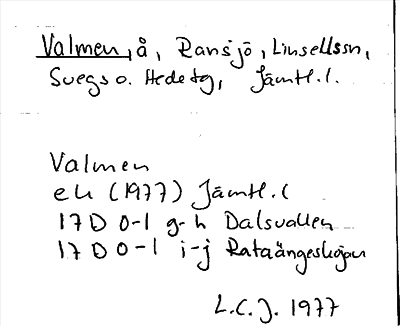 Valmen, å, Ransjö, Linsellssn,
Svegs o. Hede tg, Jämtl.l.
Valmen
ek (1977) Jämtl.l
17D 0-1 g-h Dalsvallen
17D 0-1 i-j Rataängeskojan
L.C.J. 1977